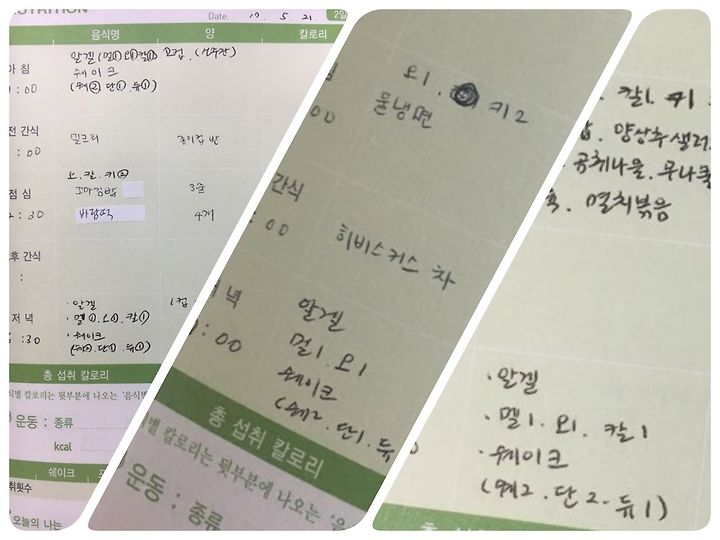 NUTRITION
Date. 17. 5. 21
2일
음식명 양 칼로리
아 침
알겔(멜① 오①칼①) 고컵. (선주잔)
쉐이크
(쉐②. 단①. 듀①)
: 00
전 간식
밀크티 종이컵 반
: 00
점 심
오. 칼. 키②
꼬마김밥 3줄
: 30
바람떡 4개
후 간식
:
저 녁
· 알겔
· 멜①. 오①. 칼①
: 30
· 쉐이크
(쉐②. 단①. 듀①)
총 섭취 칼로리
식별 칼로리는 뒷부분에 나오는 '음식별
운동 : 종류
kcal
쉐이크
취횟수
오늘의 나는
오1. 키2
물냉면
00
간식
: 00
히비스커스 차
녁
알겔
: 00
멜1. 오1
쉐이크
(쉐2. 단1. 듀
총 섭취 칼로리
별 칼로리는 뒷부분에 나오는 '음
운동 : 종류
칼1. 키1
양상추샐러
곰취나물. 무나물
멸치볶음
· 알겔
· 멜1. 오1. 칼1
· 쉐이크
(쉐2. 단2. 듀1)